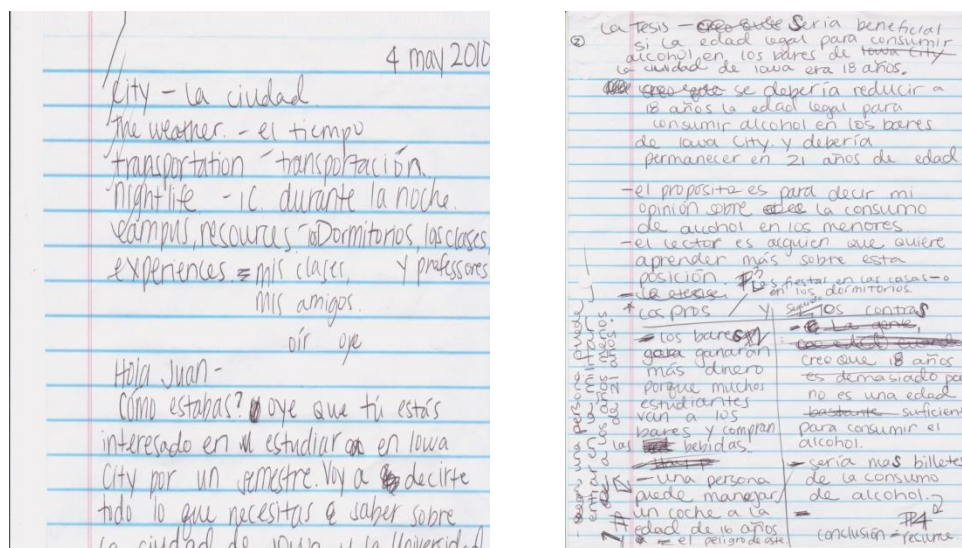 4 may 2010
City - La ciudad.
The weather. - el tiempo
transportation - transportación.
nightlife. - I.C. durante la noche.
campus, resources - Dormitorios, las clases,
experiences. = mis clases, y professores
mis amigos.
oír oye
Hola Juan -
Cómo estabas? oye que tú estás
interesado en estudiar en Iowa
City por un semestre. Voy a decirte
todo lo que necesitas a saber sobre
la ciudad de Iowa y la Universidad
② La Tesis - Sería beneficial
si la edad legal para consumir
alcohol en los bares de Iowa City
la ciudad de Iowa era 18 años.
se debería reducir a
18 años la edad legal para
consumir alcohol en los bares
de Iowa City. y debería
permanecer en 21 años de edad
- el proposito es para decir mi
opinión sobre la consumo
de alcohol en los menores
- el lector es alguien que quiere
aprender más sobre esta
posición.
Los fiestas en las casas - o
en los dormitorios.
* Los pros y
los contras
- los bares
ganarán
más dinero
porque muchos
estudiantes
van a los
bares y compran
las bebidas.
- una persona
puede manejar
un coche a la
edad de 16 años
- el peligro de este
- La gente,
creo que 18 años
es demasiado
no es una edad
bastante suficien
para consumir el
alcohol.
- sería mas billetes
de la consumo
de alcohol.
#4
conclusión - reciume